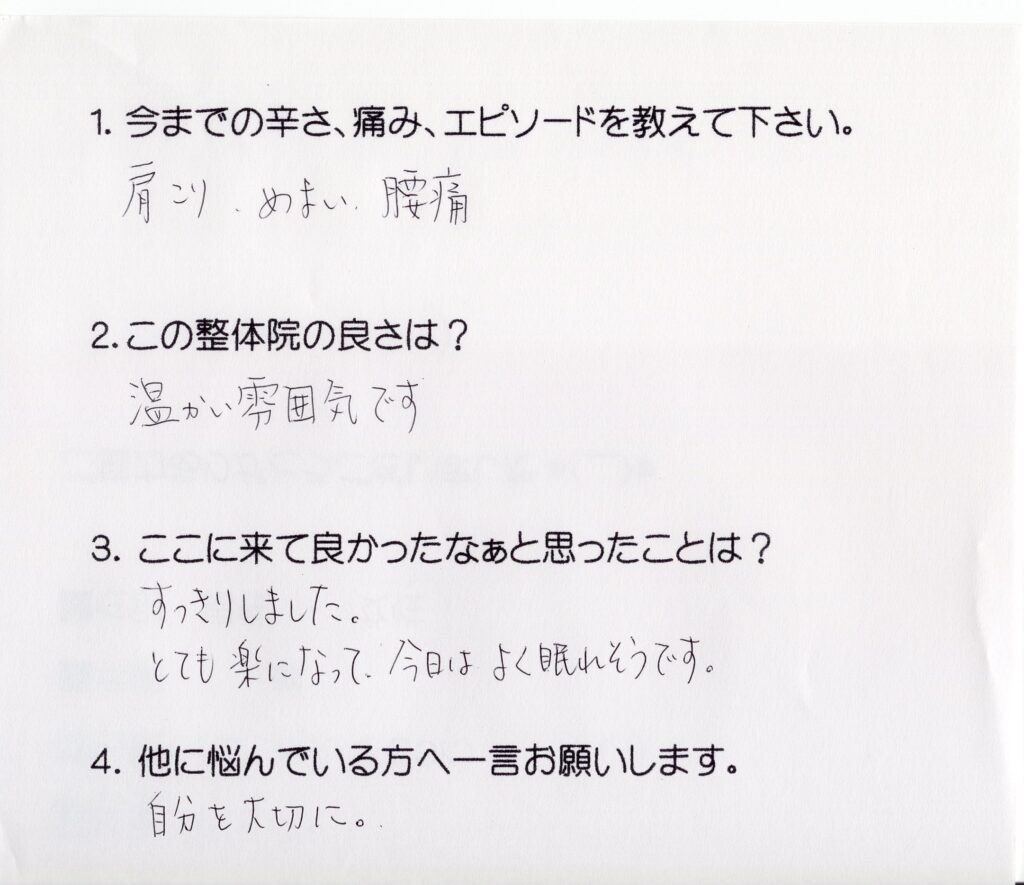 1. 今までの辛さ、痛み、エピソードを教えて下さい。
肩こり、めまい、腰痛
2. この整体院の良さは？
温かい雰囲気です
3. ここに来て良かったなぁと思ったことは？
すっきりしました。
とても楽になって、今日は よく眠れそうです。
4. 他に悩んでいる方へ一言お願いします。
自分を大切に。